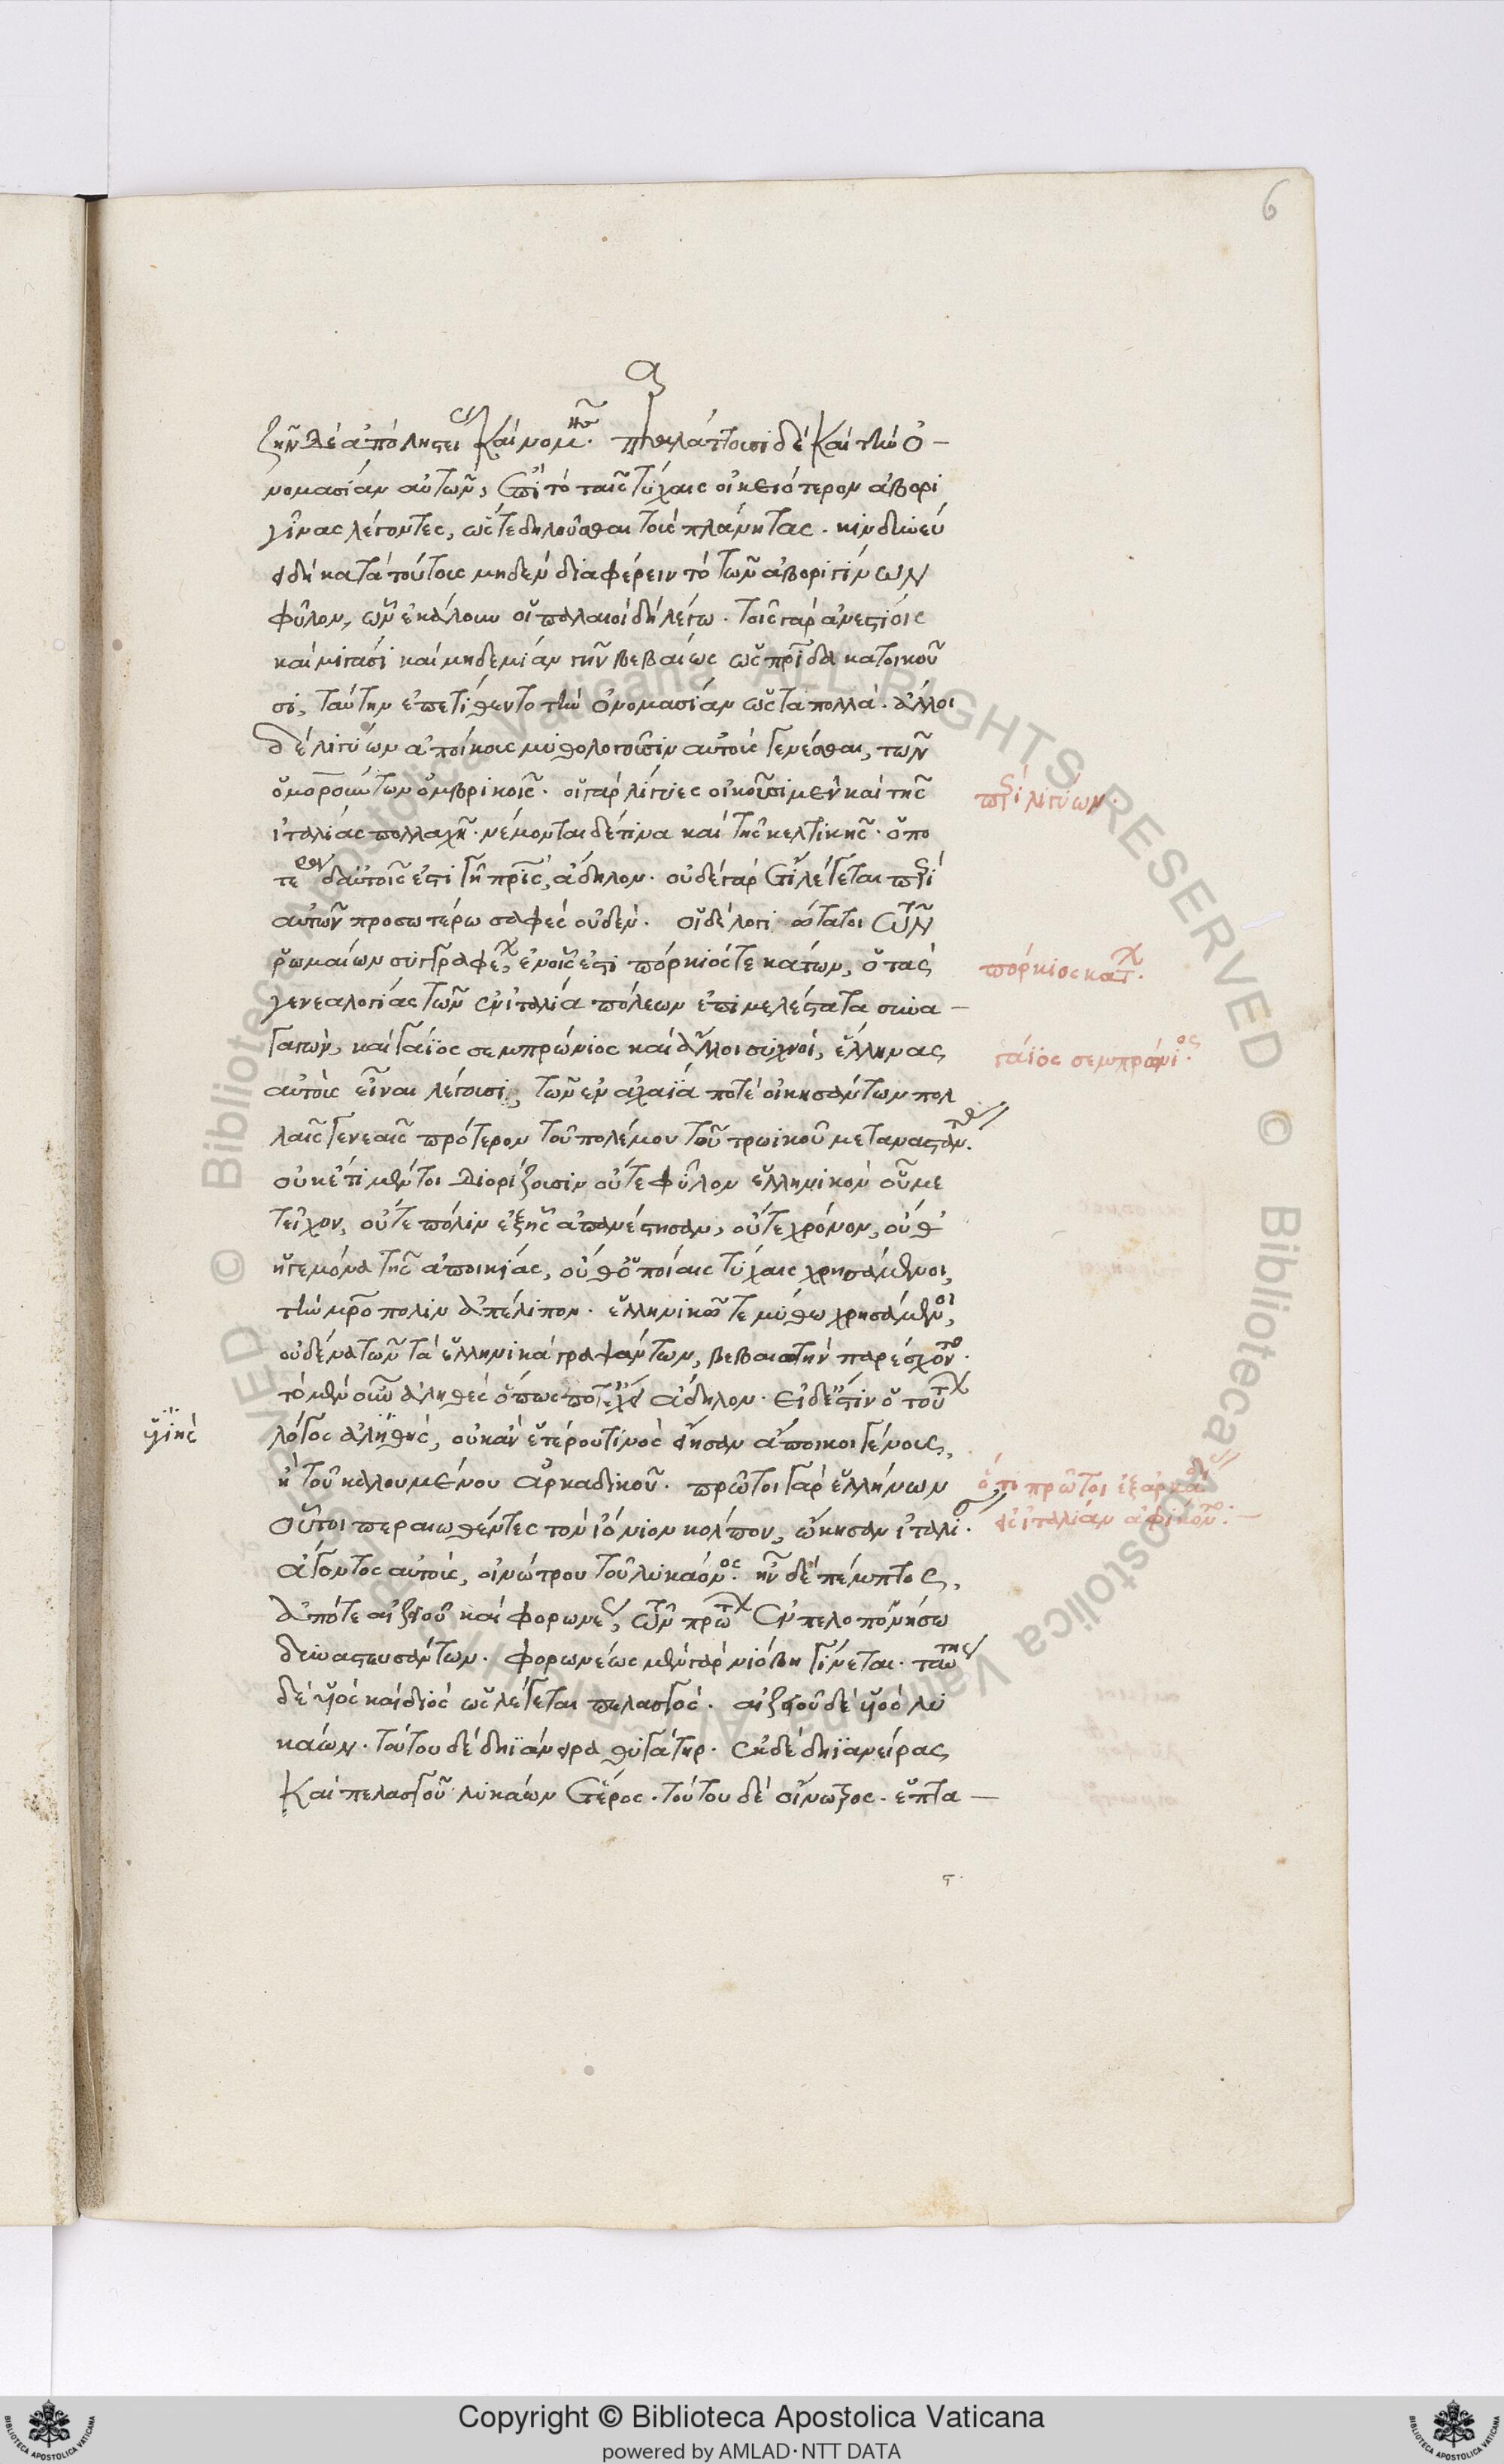 6
α
ζῆν δὲ ἀπὸ λῃστείας καὶ νομῆς. παραλάττουσι δὲ καὶ τὴν ὀ-
νομασίαν αὐτῶν, ἐπὶ τὸ ταῖς τύχαις οἰκειότερον ἀβορι
γῖνας λέγοντες, ὥστε δηλοῦσθαι τοὺς πλάνητας. κινδυνεύ
ει δὴ κατὰ τούτους μηδὲν διαφέρειν τὸ τῶν ἀβοριγίνων
φῦλον, ὧν ἐκάλουν οἱ παλαιοὶ λελέγων. τοῖς γὰρ ἀνεστίοις
καὶ μιγάσι καὶ μηδεμίαν γῆν βεβαίως ὡς πατρίδα κατοικοῦ
σι, ταύτην ἐπετίθεντο τὴν ὀνομασίαν ὡς τὰ πολλά. ἄλλοι
δὲ λιγύων ἀποίκους μυθολογοῦσιν αὐτοὺς γενέσθαι, τῶν
ὁμορούντων ὀμβρικοῖς. οἱ γὰρ λίγυες οἰκοῦσι μὲν καὶ τῆς
ἰταλίας πολλαχῆ. νέμονται δέ τινα καὶ τῆς κελτικῆς. ὁπο
τέρα δ' αὐτοῖς ἐστὶ γῆ πατρίς, ἄδηλον. οὐδὲ γὰρ ἔτι λέγεται περὶ
αὐτῶν προσωτέρω σαφὲς οὐδέν. οἱ δὲ λογιώτατοι τῶν
ῥωμαίων συγγραφέων, ἐν οἷς ἐστι πόρκιός τε κάτων, ὁ τὰς
γενεαλογίας τῶν ἐν ἰταλία πόλεων ἐπιμελέστατα συνα-
γαγών, καὶ γάϊος σεμπρώνιος καὶ ἄλλοι συχνοί, ἕλληνας
αὐτοὺς εἶναι λέγουσι, τῶν ἐν ἀχαΐα ποτὲ οἰκησάντων πολ
λαῖς γενεαῖς πρότερον τοῦ πολέμου τοῦ τρωικοῦ μεταναστάντας.
οὐκέτι μέντοι διορίζουσιν οὔτε φῦλον ἑλληνικὸν οὗ με
τεῖχον, οὔτε πόλιν ἐξ ἧς ἀπανέστησαν, οὔτε χρόνον, οὔθ'
ἡγεμόνα τῆς ἀποικίας, οὔθ' ὁποίαις τύχαις χρησάμενοι,
τὴν μητρόπολιν ἀπέλιπον. ἑλληνικῶ τε μύθω χρησάμενοι,
οὐδένα τῶν τὰ ἑλληνικὰ γραψάντων, βεβαιωτὴν παρέσχοντο.
τὸ μὲν οὖν ἀληθὲς ὅπως ποτ' ἔχει ἄδηλον. εἰ δ' ἐστὶν ὁ τούτων
λόγος ἀληθής, οὐκ ἂν ἑτέρου τινὸς εἴησαν ἄποικοι γένους,
ἢ τοῦ καλουμένου ἀρκαδικοῦ. πρῶτοι γὰρ ἑλλήνων
οὗτοι περαιωθέντες τὸν ἰόνιον κόλπον, ὤκησαν ἰταλίαν.
ἄγοντος αὐτούς, οἰνώτρου τοῦ λυκάονος. ἦν δὲ πέμπτος,
ἀπό τε αἰζειοῦ καὶ φορωνέως, τῶν πρώτων ἐν πελοπονήσω
δυναστευσάντων. φορωνέως μὲν γὰρ νιόβη γίνεται. ταύτης
δὲ υἱὸς καὶ διὸς ὡς λέγεται πελασγός. αἰζειοῦ δὲ υἱὸς λυ
κάων. τούτου δὲ δηϊάνειρα θυγάτηρ. ἐκ δὲ δηϊανείρας
καὶ πελασγοῦ λυκάων ἕτερος. τούτου δὲ οἴνωτρος. ἑπτα-
περὶ λιγύων.
πόρκιος κάτων.
γάϊος σεμπρώνιος.
ὅτι πρῶτοι ἐξ ἀρκάδων
εἰς ἰταλίαν ἀφίκοντο.
ὑγιής